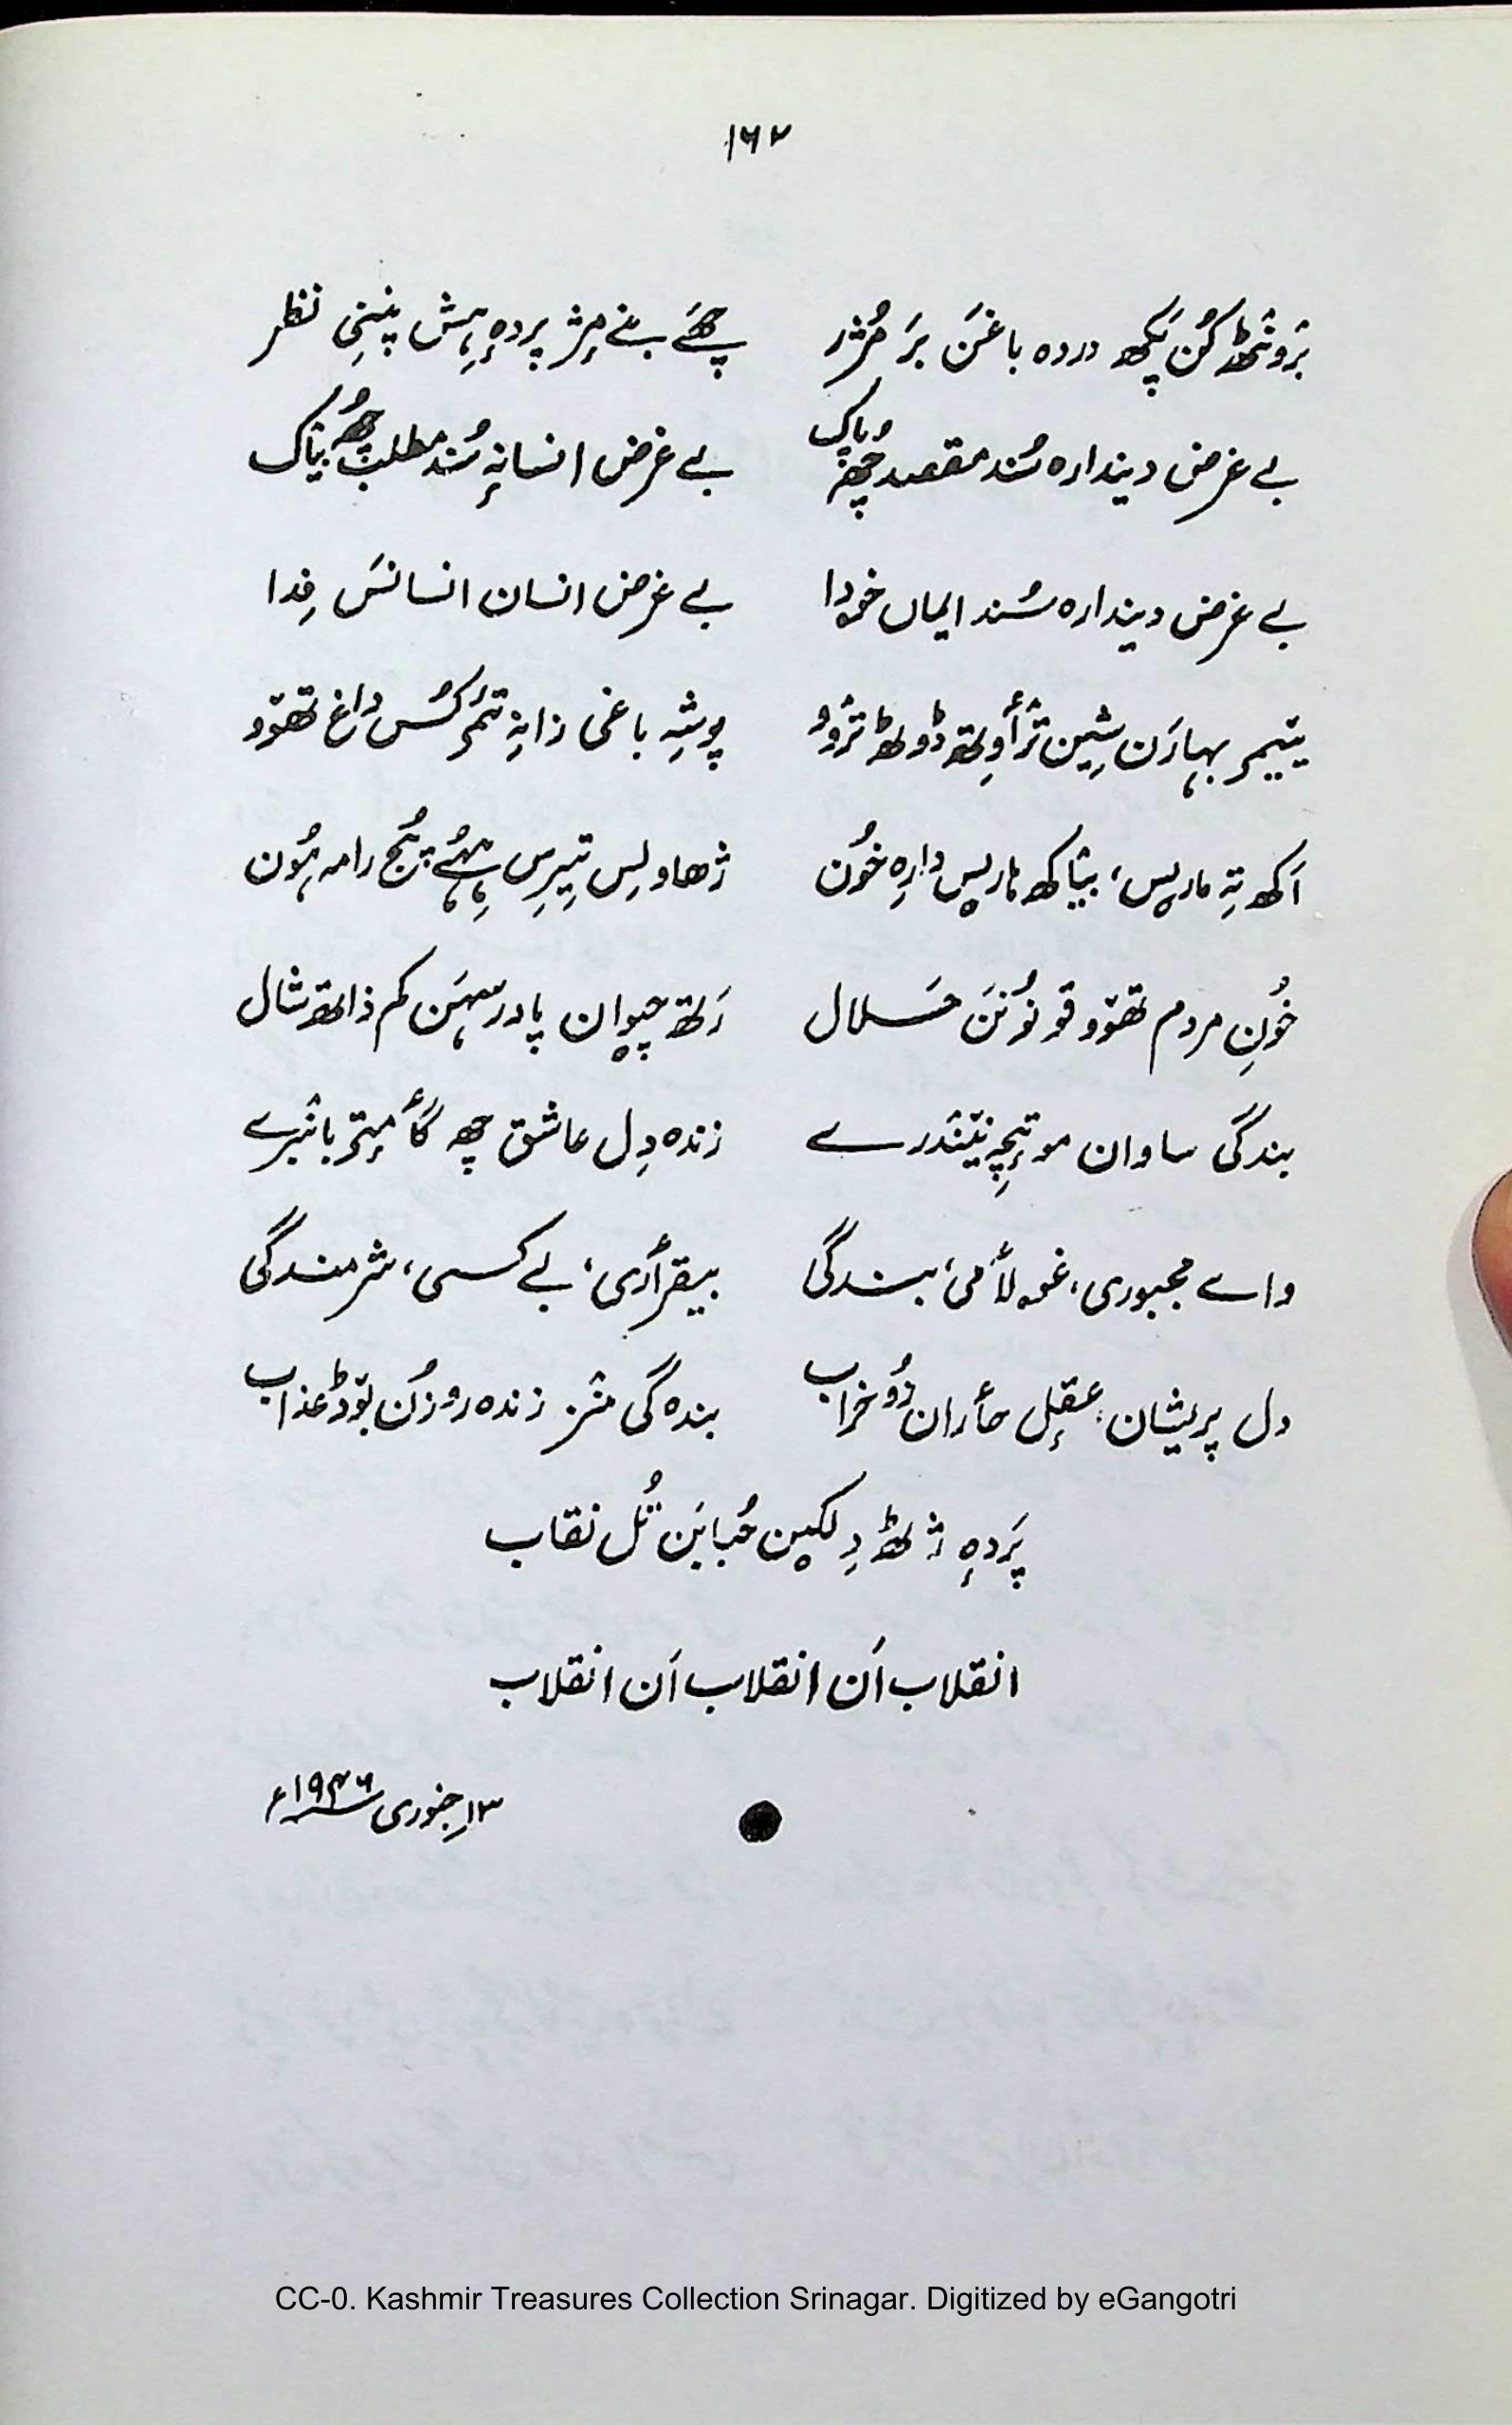 ۱۶۲
برٛونٛٹھ کُن پکھ دردہ باغَن بَر مُژر چھَے بنے مٕژ پردہٕ ہِش پننِی نظر
بے غرض دیندارہ سُند مقصد چھُ پاک بے غرض انسانہٕ سُند مطلب چھُ بیٛاک
بے غرض دیندارہ سُند ایماں خودا بے غرض انسان انسانَس فِدا
یٔتیمۍ بہارَن شیٖن ترٛأوِتھ ڈوٗٹھ ترٛوو پوشہِ باغی زانہِ تٔمۍ کُس داغ تھوٚو
اَکھ تہِ ماریس، بیٛاکھ ماریس دارِہ خوٗن ژھاولِس تیٖرِس ہِہُے پۄج رامہ ہوٗن
خوٗنِ مردم تھوٚو قونوٗنَن حَلال رَتھ چیوان پادر سہَن کم ذاتھ شال
بندگی ساوان موتٕچہِ نیٚندرے زندہ دِل عاشق چھہِ گأمٕتۍ بانٛبرے
واے مجبوری، غۄلأمی، بندگی بیقرأری، بے کسی، شرمندگی
دل پریشان، عقٕل حأران زُو خراب بندہ گی منٛز زندہ روزُن بوٚڈ عذاب
پَردہٕ ژٹھ دِلکین حُبابَن تُل نقاب
انقلاب اَن انقلاب اَن انقلاب
۱۳؍جنوری ۱۹۴۶ء
CC-0. Kashmir Treasures Collection Srinagar. Digitized by eGangotri